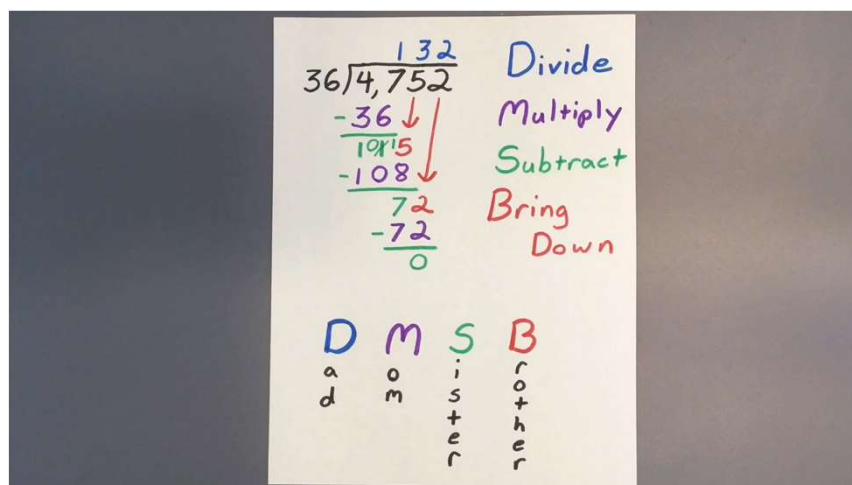 132
36)4,752
-36
1015
-108
72
-72
0
Divide
Multiply
Subtract
Bring
Down
D M S B
Dad
Mom
Sister
Brother